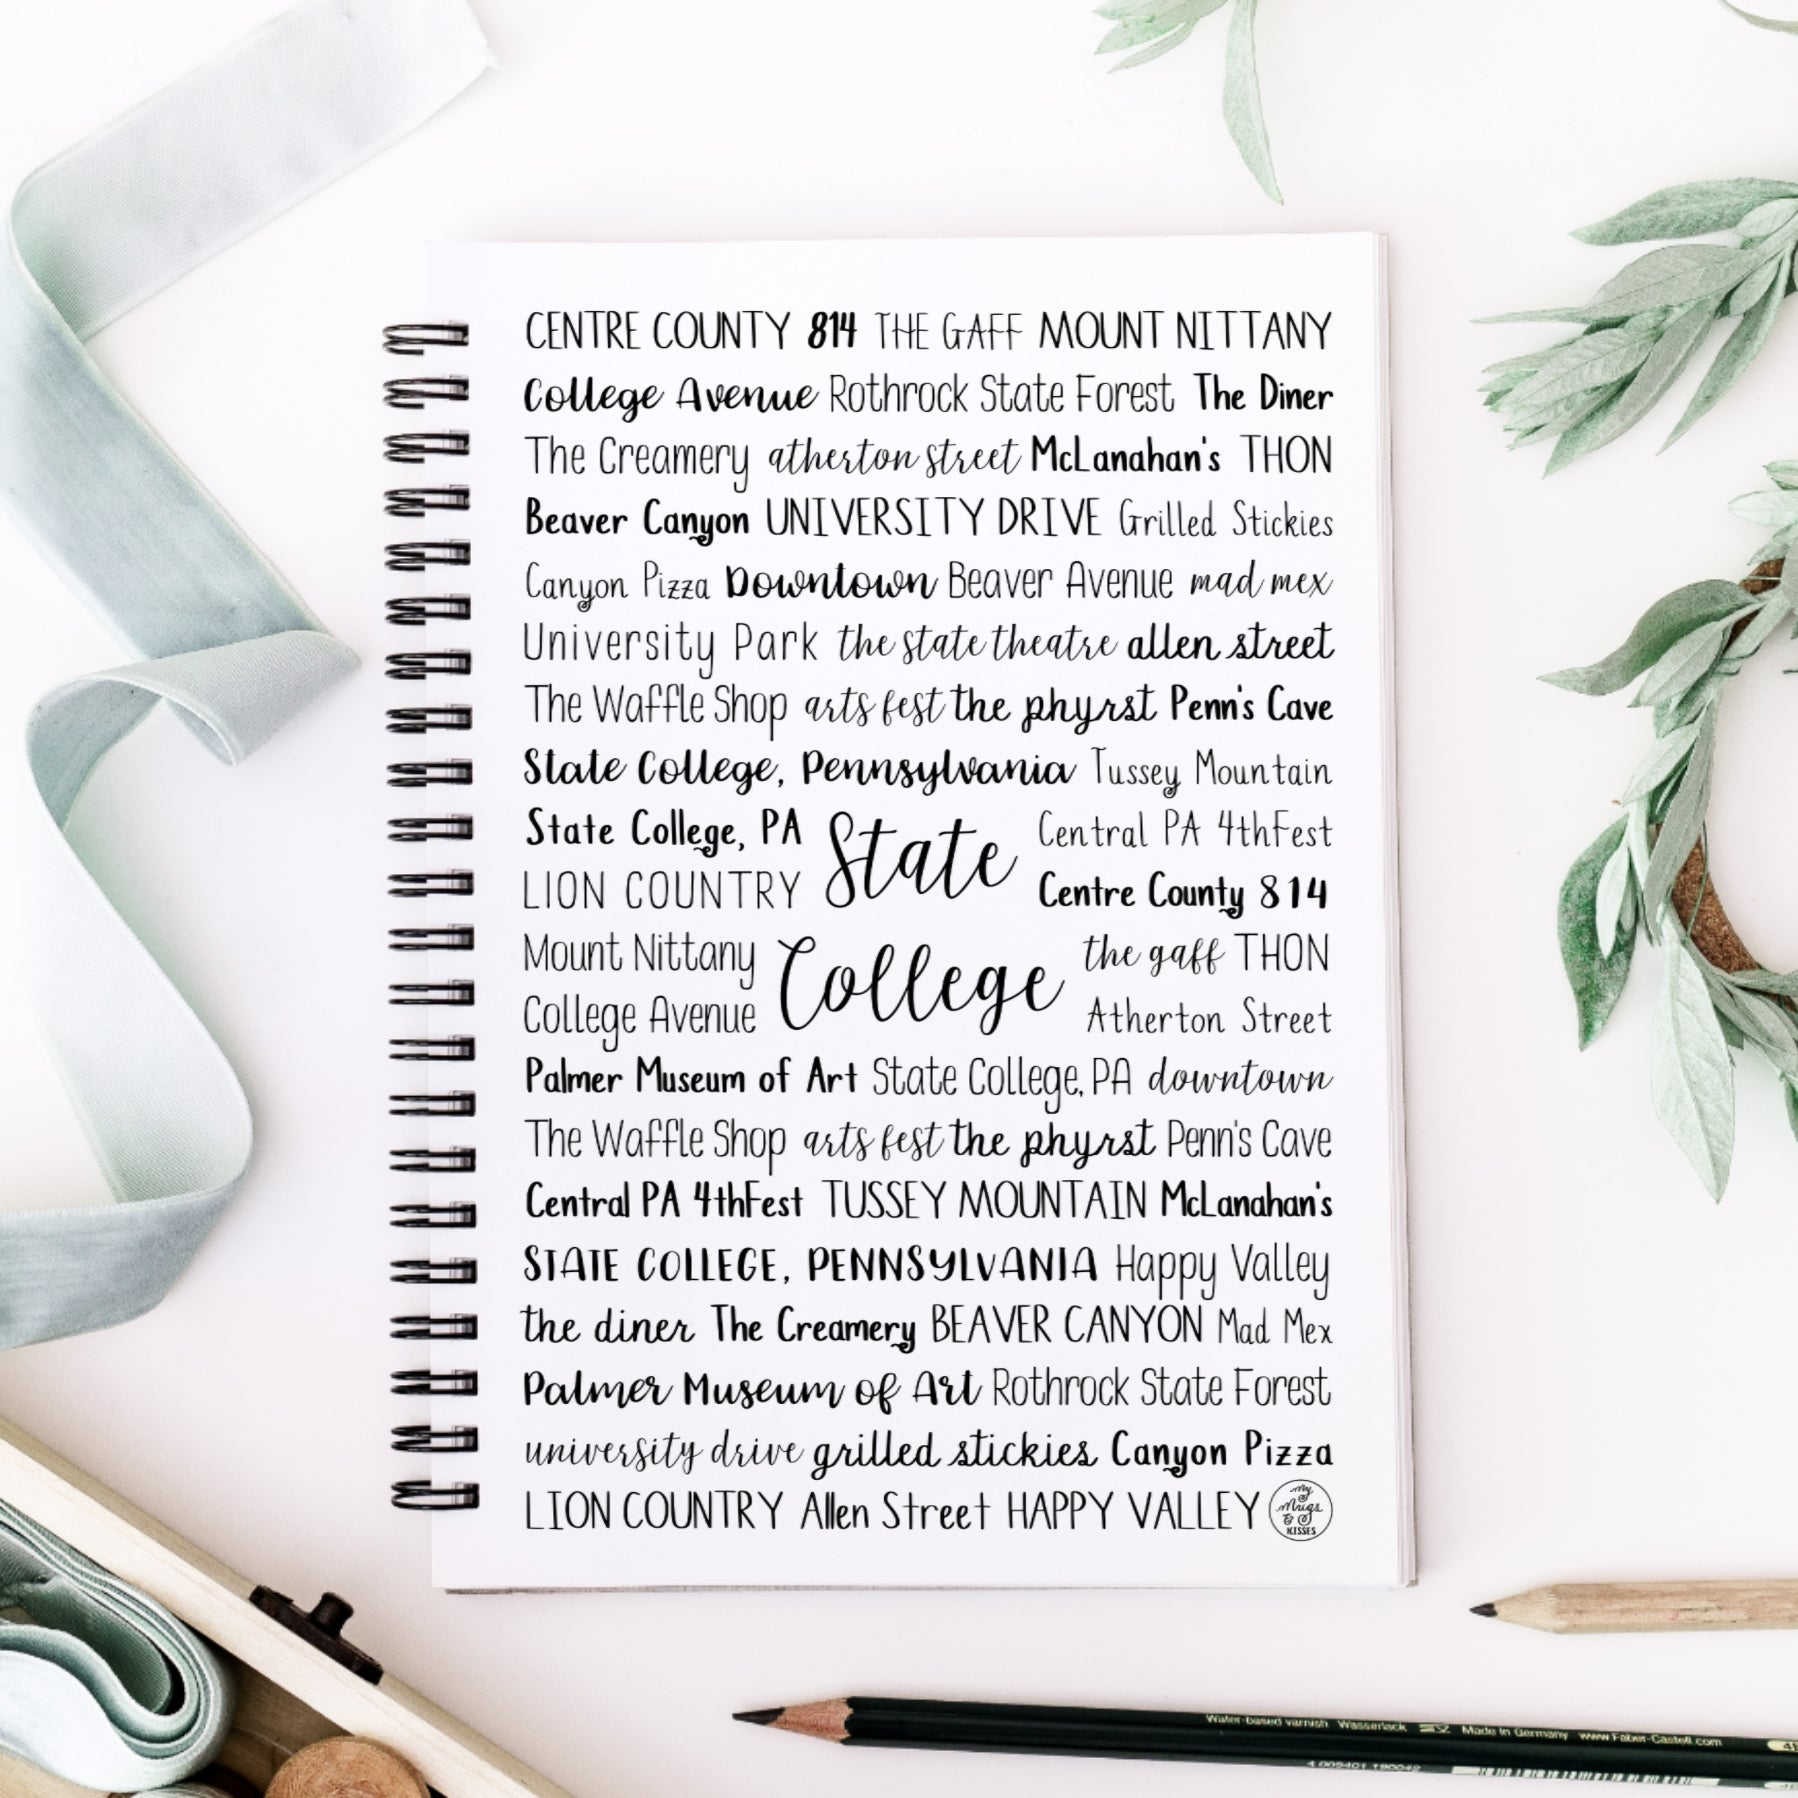 CENTRE COUNTY 814 THE GAFF MOUNT NITTANY
College Avenue Rothrock State Forest The Diner
The Creamery atherton street McLanahan's THON
Beaver Canyon UNIVERSITY DRIVE Grilled Stickies
Canyon Pizza Downtown Beaver Avenue mad mex
University Park the state theatre allen street
The Waffle Shop arts fest the phyrst Penn's Cave
State College, Pennsylvania Tussey Mountain
State College, PA
LION COUNTRY
State
Central PA 4thFest
Centre County 814
Mount Nittany
College Avenue
College
the gaff THON
Atherton Street
Palmer Museum of Art State College, PA downtown
The Waffle Shop arts fest the phyrst Penn's Cave
Central PA 4thFest TUSSEY MOUNTAIN McLanahan's
STATE COLLEGE, PENNSYLVANIA Happy Valley
the diner The Creamery BEAVER CANYON Mad Mex
Palmer Museum of Art Rothrock State Forest
university drive grilled stickies Canyon Pizza
LION COUNTRY Allen Street HAPPY VALLEY
My
Mugs
&
KISSES
Water-based varnish Wasserlack Made in Germany www.Faber-Castell.com
4 005401 190042